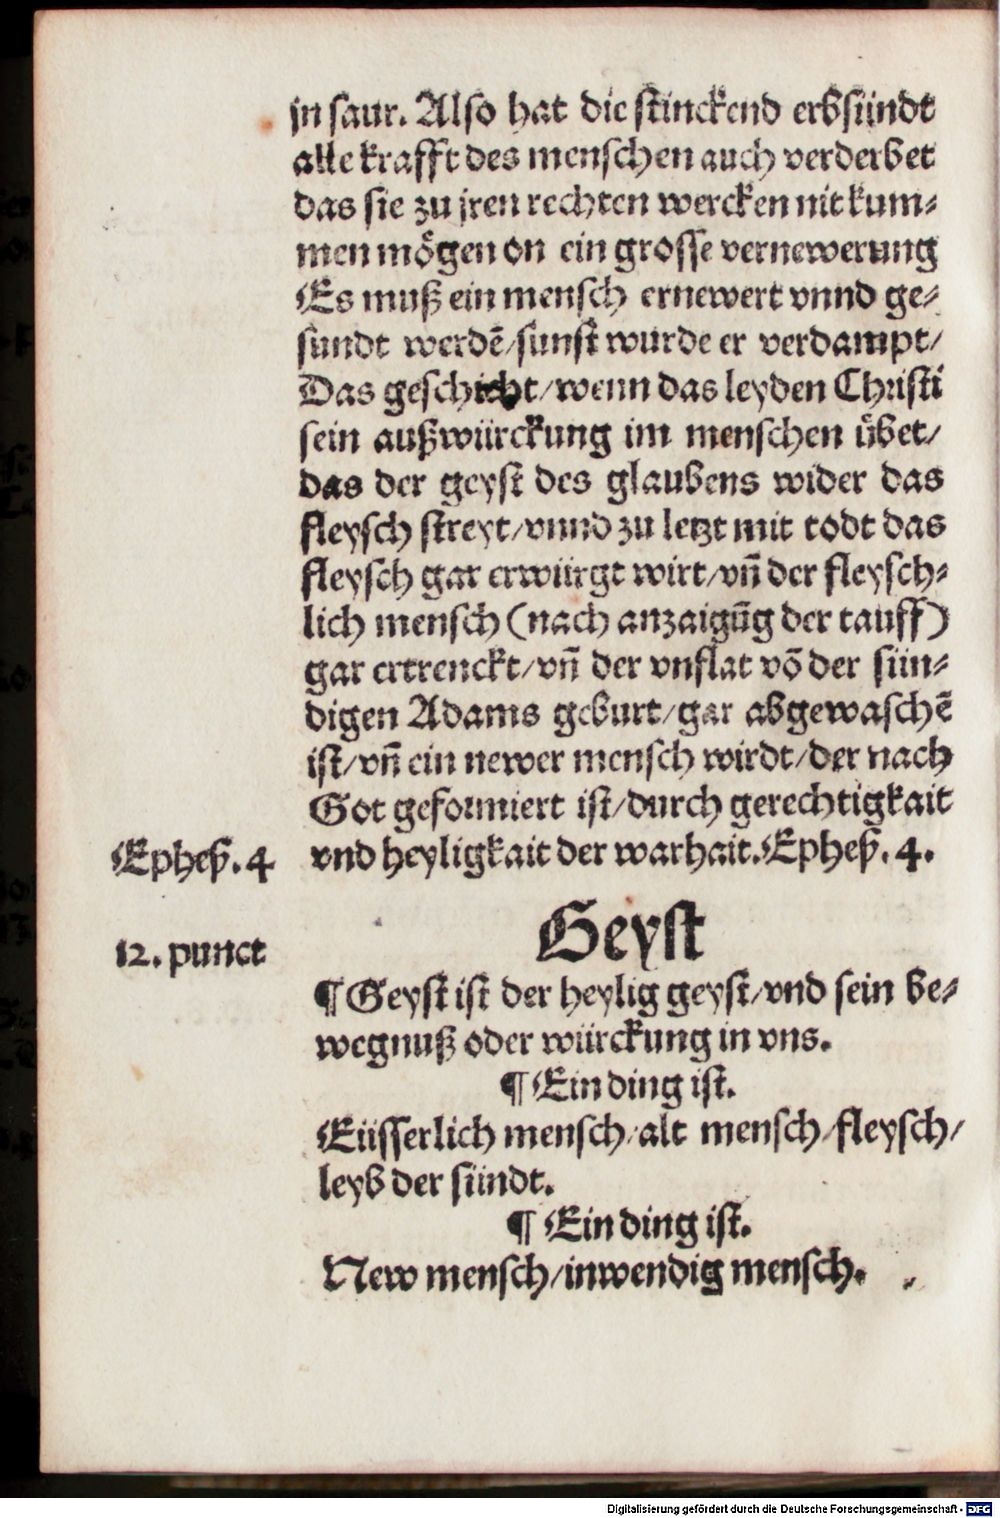 jn saur. Also hat die stinckend erbsündt
alle krafft des menschen auch verderbet
das sie zu jren rechten wercken nit kum⸗
men mögen on ein grosse vernewerung
Es muß ein mensch ernewert vnnd ge⸗
sundt werdē/sunst wurde er verdampt/
Das geschicht/wenn das leyden Christi
sein außwürckung im menschen übet/
das der geyst des glaubens wider das
fleysch streyt/vnnd zu letzt mit todt das
fleysch gar erwürgt wirt/vn̄ der fleysch⸗
lich mensch (nach anzaigūg der tauff)
gar ertrenckt/vn̄ der vnflat vō der sün⸗
digen Adams geburt/gar abgewaschē
ist/vn̄ ein newer mensch wirdt/der nach
Got geformiert ist/durch gerechtigkait
vnd heyligkait der warhait. Epheß. 4.
Epheß. 4
Geyst
12. punct
¶ Geyst ist der heylig geyst/vnd sein be⸗
wegnuß oder würckung in vns.
¶ Ein ding ist.
Eüsserlich mensch/alt mensch/fleysch/
leyb der sündt.
¶ Ein ding ist.
New mensch/inwendig mensch.
Digitalisierung gefördert durch die Deutsche Forschungsgemeinschaft - DFG